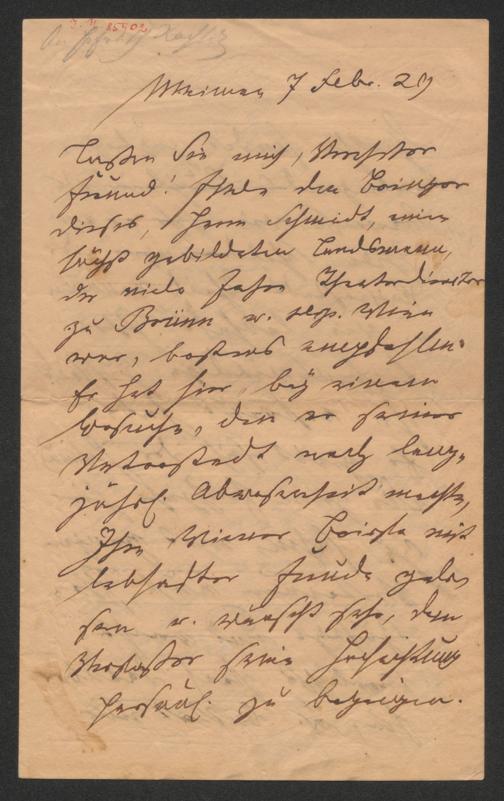 J. N. 85902
Weimar 7 Febr. 29
Laßen Sie mich, Verehrter
Freund! Ihnen den Bringer
dieses, Herrn Schmidt, einen
höchst gebildeten Landsmann,
der viele Jahre Theaterdirector
zu Brünn u. resp. Wien
war, bestens empfehlen.
Er hat hier, bey einem
Besuche, den er seiner
Vaterstadt nach lang-
jähr. Abwesenheit machte,
Ihre Wiener Briefe mit
lebhafter Freude gele-
sen u. wünscht sehr, dem
Verfasser seine Hochachtung
persönl. zu bezeigen.